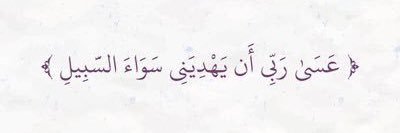 ﴿ عَسَىٰ رَبِّي أَن يَهْدِيَنِي سَوَاءَ السَّبِيلِ ﴾